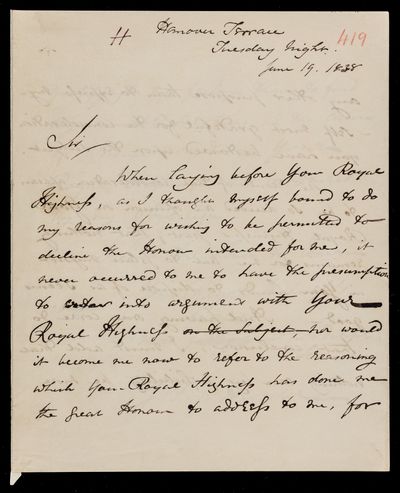 H
419
Hanover Terrace
Tuesday Night.
June 19. 1838
Sir
When laying before Your Royal
Highness, as I thought myself bound to do
my reasons for wishing to be permitted to
decline the Honour intended for me, it
never occurred to me to have the presumption
to enter into argument with Your
Royal Highness on the Subject, nor would
it become me now to refer to the reasoning
which Your Royal Highness has done me
the great Honour to address to me, for